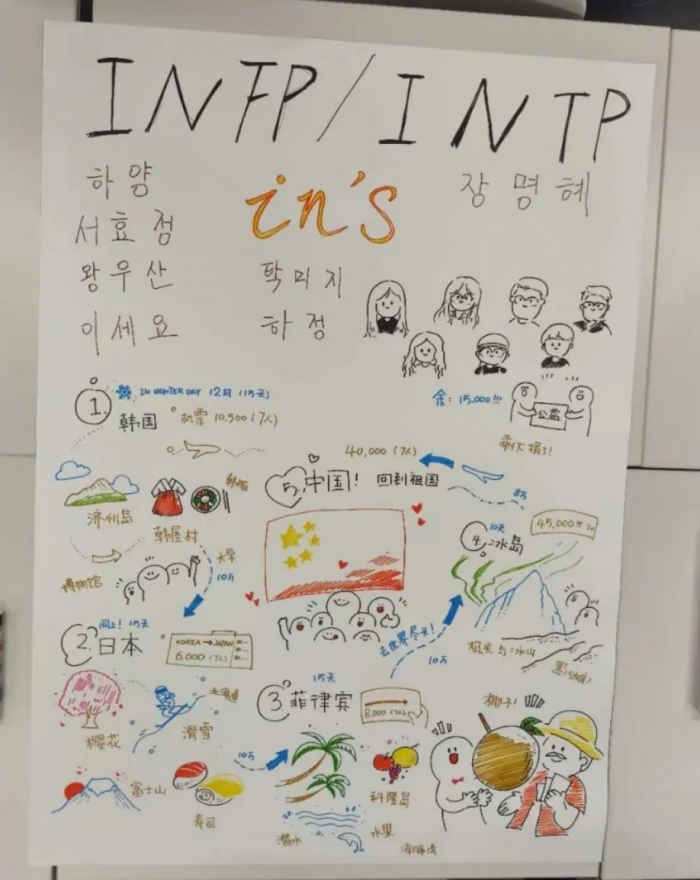 INFP/INTP
하양
in's
장명혜
서효점
왕우산
탁미지
이세요
하정
① IN WINTER DAY 12月 (15天)
韩国
机票 10,500 (7人)
余: 15,000!!!
公益
剩下捐了!
济州岛
韩屋村
韩服
博物馆
大学
10万
⑤ 中国! 回到祖国
40,000 (7人)
8万
④ 10天
冰岛
45,000
极光与冰山
黑沙滩!
去世界尽头!
10万
② 同上! 15天
日本
KOREA → JAPAN
6,000 (7人)
樱花
北海道
滑雪
富士山
寿司
10万
15天
③ 菲律宾
8,000 (7人)
潜水
水果
椰子!